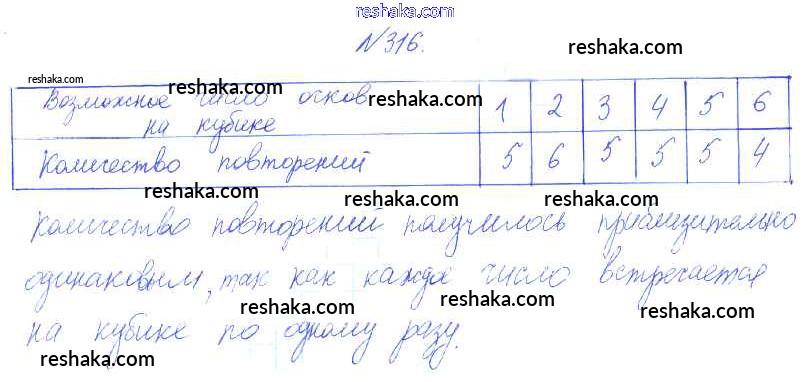 reshaka.com
№316.
reshaka.com
reshaka.com
Возможное число осков reshaka.com reshaka.com 1 2 3 4 5 6
на кубике
Количество повторений 5 6 5 5 5 4
reshaka.com reshaka.com reshaka.com
Количество повторений получилось приблизительно
одинаковым, так как каждое число встречается
reshaka.com reshaka.com reshaka.com
на кубике по одному разу.
reshaka.com reshaka.com